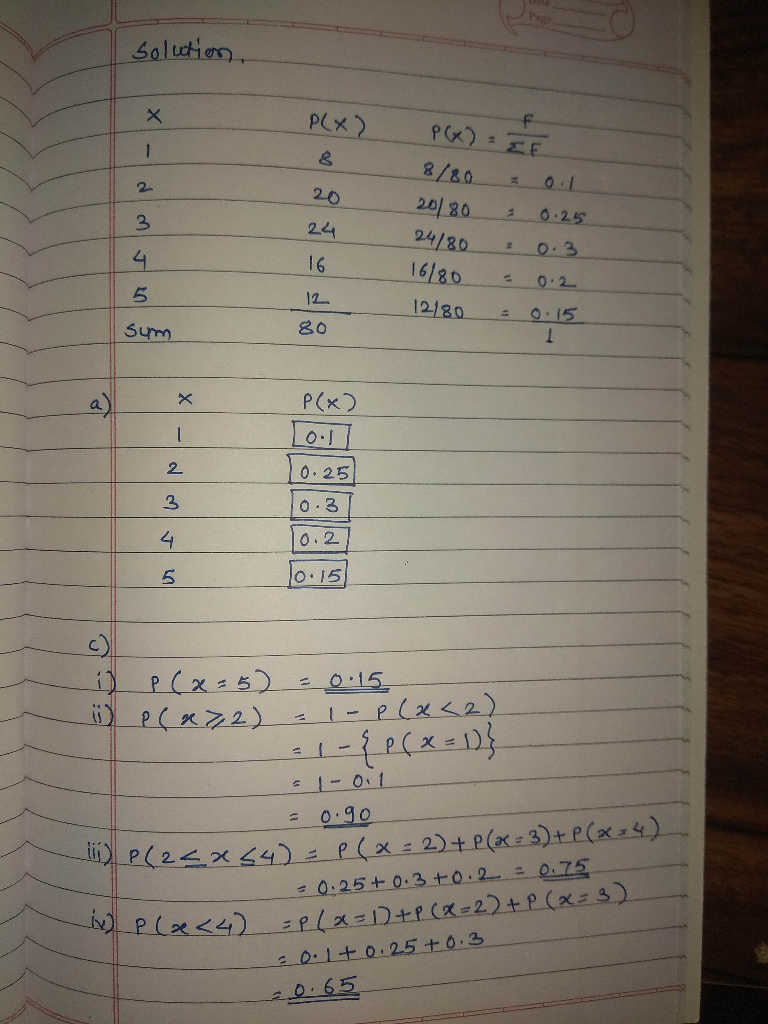 Date
Page
Solution.
x P(x) P(x) = F/ΣF
1 8 8/80 = 0.1
2 20 20/80 = 0.25
3 24 24/80 = 0.3
4 16 16/80 = 0.2
5 12 12/80 = 0.15
Sum 80 1
a) x P(x)
1 0.1
2 0.25
3 0.3
4 0.2
5 0.15
c)
i) P(x = 5) = 0.15
ii) P(x ⩾ 2) = 1 - P(x < 2)
= 1 - { P(x = 1)}
= 1 - 0.1
= 0.90
iii) P(2 ≤ x ≤ 4) = P(x = 2) + P(x = 3) + P(x = 4)
= 0.25 + 0.3 + 0.2 = 0.75
iv) P(x < 4) = P(x = 1) + P(x = 2) + P(x = 3)
= 0.1 + 0.25 + 0.3
= 0.65